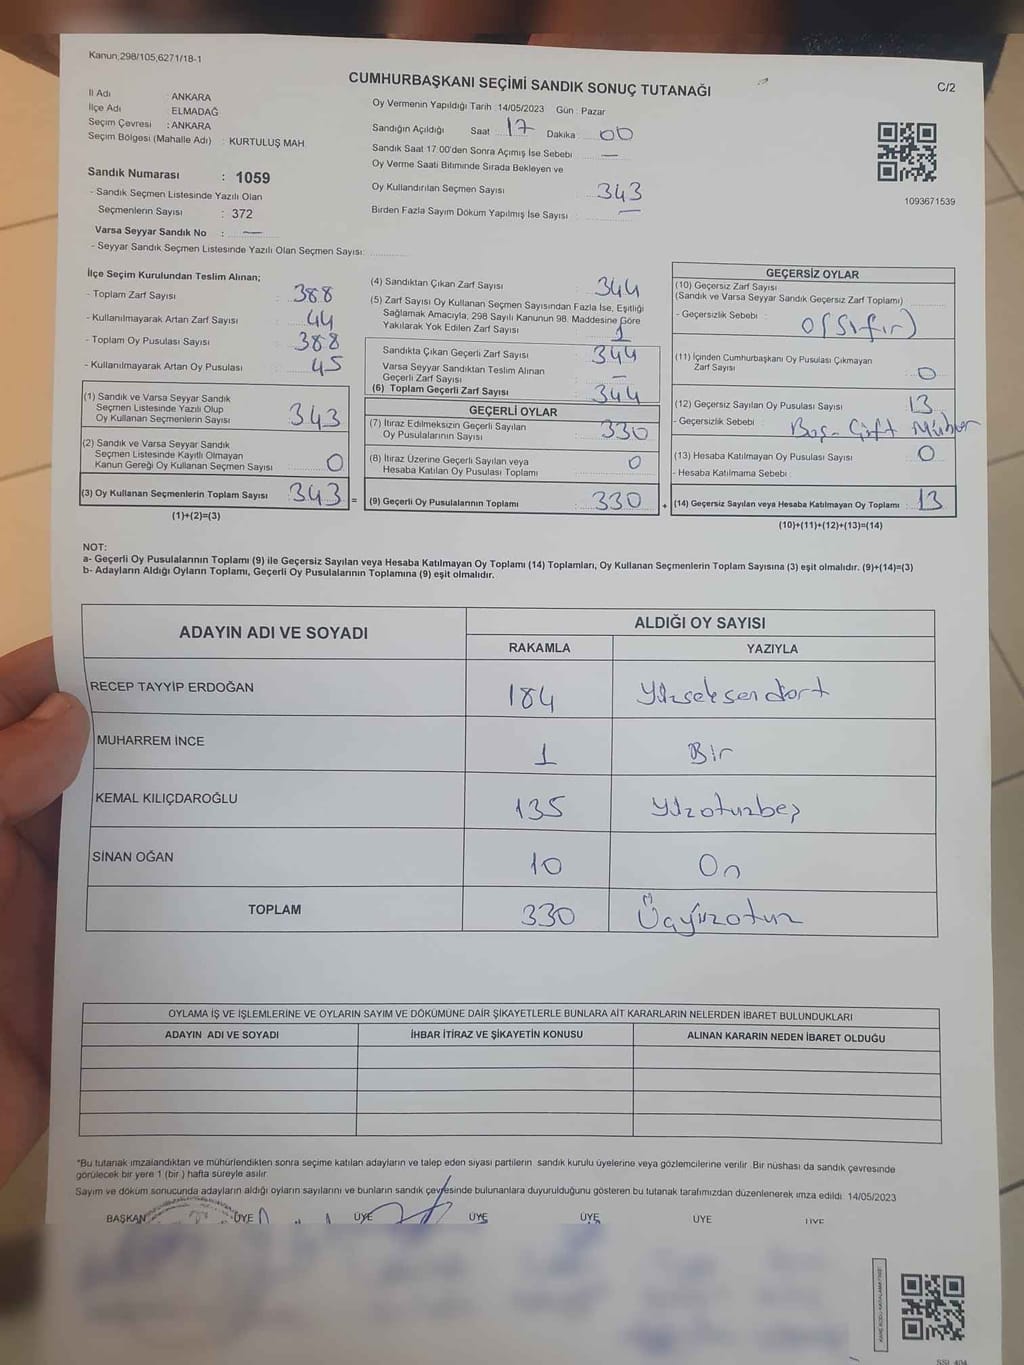 Kanun,298/105,6271/18-1
CUMHURBAŞKANI SEÇİMİ SANDIK SONUÇ TUTANAĞI
C/2
İl Adı : ANKARA
İlçe Adı : ELMADAĞ
Seçim Çevresi : ANKARA
Seçim Bölgesi (Mahalle Adı) : KURTULUŞ MAH.
Sandık Numarası : 1059
- Sandık Seçmen Listesinde Yazılı Olan
Seçmenlerin Sayısı : 372
Varsa Seyyar Sandık No : —
- Seyyar Sandık Seçmen Listesinde Yazılı Olan Seçmen Sayısı:
Oy Vermenin Yapıldığı Tarih :14/05/2023 Gün : Pazar
Sandığın Açıldığı Saat 17 Dakika : 00
Sandık Saat 17.00'den Sonra Açımış İse Sebebi : —
Oy Verme Saati Bitiminde Sırada Bekleyen ve
Oy Kullandırılan Seçmen Sayısı : 343
Birden Fazla Sayım Döküm Yapılmış İse Sayısı : —
1093671539
İlçe Seçim Kurulundan Teslim Alınan;
- Toplam Zarf Sayısı : 388
- Kullanılmayarak Artan Zarf Sayısı : 44
- Toplam Oy Pusulası Sayısı : 388
- Kullanılmayarak Artan Oy Pusulası : 45
(1) Sandık ve Varsa Seyyar Sandık
Seçmen Listesinde Yazılı Olup
Oy Kullanan Seçmenlerin Sayısı : 343
(2) Sandık ve Varsa Seyyar Sandık
Seçmen Listesinde Kayıtlı Olmayan
Kanun Gereği Oy Kullanan Seçmen Sayısı : 0
(3) Oy Kullanan Seçmenlerin Toplam Sayısı : 343 =
(1)+(2)=(3)
(4) Sandıktan Çıkan Zarf Sayısı : 344
(5) Zarf Sayısı Oy Kullanan Seçmen Sayısından Fazla İse, Eşitliği
Sağlamak Amacıyla, 298 Sayılı Kanunun 98. Maddesine Göre
Yakılarak Yok Edilen Zarf Sayısı : 1
Sandıkta Çıkan Geçerli Zarf Sayısı : 344
Varsa Seyyar Sandıktan Teslim Alınan
Geçerli Zarf Sayısı : —
(6) Toplam Geçerli Zarf Sayısı : 344
GEÇERLİ OYLAR
(7) İtiraz Edilmeksizin Geçerli Sayılan
Oy Pusulalarının Sayısı : 330
(8) İtiraz Üzerine Geçerli Sayılan veya
Hesaba Katılan Oy Pusulası Toplamı : 0
(9) Geçerli Oy Pusulalarının Toplamı : 330 +
GEÇERSİZ OYLAR
(10) Geçersiz Zarf Sayısı
(Sandık ve Varsa Seyyar Sandık Geçersiz Zarf Toplamı) :
- Geçersizlik Sebebi : 0(sıfır)
(11) İçinden Cumhurbaşkanı Oy Pusulası Çıkmayan
Zarf Sayısı : 0
(12) Geçersiz Sayılan Oy Pusulası Sayısı : 13
- Geçersizlik Sebebi : Boş-Çift Mühür
(13) Hesaba Katılmayan Oy Pusulası Sayısı : 0
- Hesaba Katılmama Sebebi :
(14) Geçersiz Sayılan veya Hesaba Katılmayan Oy Toplamı : 13
(10)+(11)+(12)+(13)=(14)
NOT:
a- Geçerli Oy Pusulalarının Toplamı (9) ile Geçersiz Sayılan veya Hesaba Katılmayan Oy Toplamı (14) Toplamları, Oy Kullanan Seçmenlerin Toplam Sayısına (3) eşit olmalıdır. (9)+(14)=(3)
b- Adayların Aldığı Oyların Toplamı, Geçerli Oy Pusulalarının Toplamına (9) eşit olmalıdır.
ADAYIN ADI VE SOYADI
ALDIĞI OY SAYISI
RAKAMLA YAZIYLA
RECEP TAYYİP ERDOĞAN 184 Yüzseksendört
MUHARREM İNCE 1 Bir
KEMAL KILIÇDAROĞLU 135 Yüzotuzbeş
SİNAN OĞAN 10 On
TOPLAM 330 Üçyüzotuz
OYLAMA İŞ VE İŞLEMLERİNE VE OYLARIN SAYIM VE DÖKÜMÜNE DAİR ŞİKAYETLERLE BUNLARA AİT KARARLARIN NELERDEN İBARET BULUNDUKLARI
ADAYIN ADI VE SOYADI İHBAR İTİRAZ VE ŞİKAYETİN KONUSU ALINAN KARARIN NEDEN İBARET OLDUĞU
*Bu tutanak imzalandıktan ve mühürlendikten sonra seçime katılan adayların ve talep eden siyasi partilerin sandık kurulu üyelerine veya gözlemcilerine verilir. Bir nüshası da sandık çevresinde
görülecek bir yere 1 (bir ) hafta süreyle asılır.
Sayım ve döküm sonucunda adayların aldığı oyların sayılarını ve bunların sandık çevresinde bulunanlara duyurulduğunu gösteren bu tutanak tarafımızdan düzenlenerek imza edildi. 14/05/2023
BAŞKAN ÜYE ÜYE ÜYE ÜYE ÜYE ÜYE